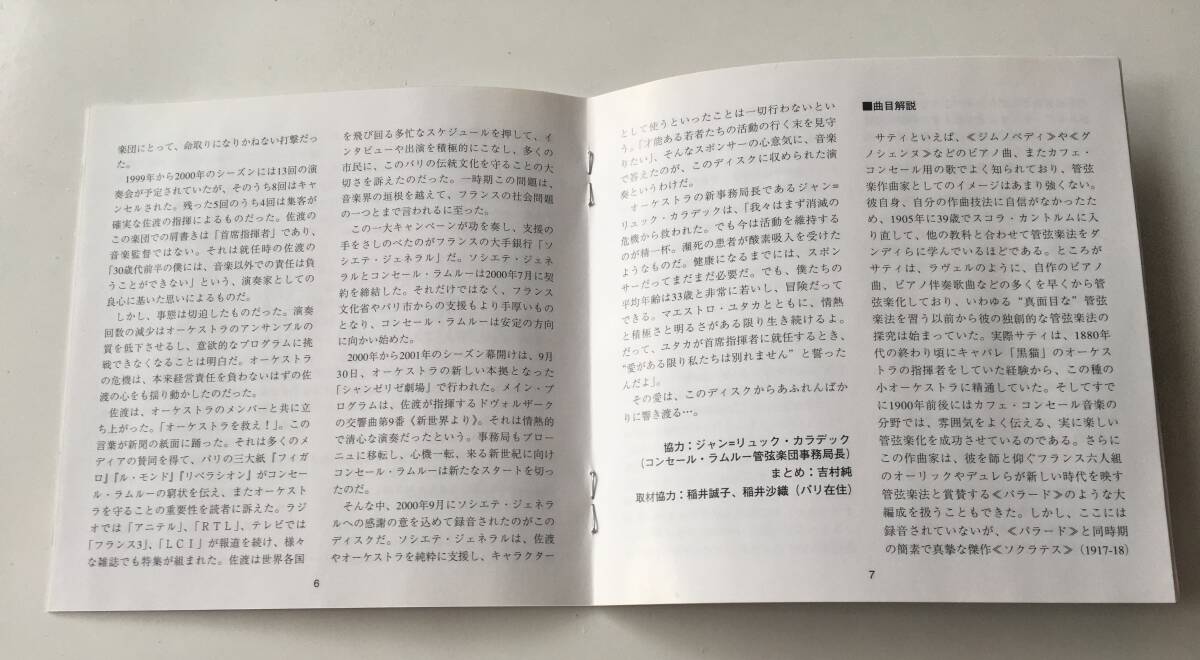 楽団にとって、命取りになりかねない打撃だっ
た。
1999年から2000年のシーズンには13回の演
奏会が予定されていたが、そのうち8回はキャ
ンセルされた。残った5回のうち4回は集客が
確実な佐渡の指揮によるものだった。佐渡の
この楽団での肩書きは「首席指揮者」であり、
音楽監督ではない。それは就任時の佐渡の
「30歳代前半の僕には、音楽以外での責任は負
うことができない」という、演奏家としての
良心に基いた思いによるものだ。
しかし、事態は切迫したものだった。演奏
回数の減少はオーケストラのアンサンブルの
質を低下させるし、意欲的なプログラムに挑
戦できなくなることは明白だ。オーケストラ
の危機は、本来経営責任を負わないはずの佐
渡の心をも揺り動かしたのだった。
佐渡は、オーケストラのメンバーと共に立
ち上がった。「オーケストラを救え!」。この
言葉が新聞の紙面に踊った。それは多くのメ
ディアの賛同を得て、パリの三大紙『フィガ
ロ』『ル・モンド』『リベラシオン』がコンセー
ル・ラムルーの窮状を伝え、またオーケスト
ラを守ることの重要性を読者に訴えた。ラジ
オでは「アニテル」、「ＲＴＬ」、テレビでは
「フランス3」、「ＬＣＩ」が報道を続け、様々
な雑誌でも特集が組まれた。佐渡は世界各国
6
を飛び回る多忙なスケジュールを押して、イ
ンタビューや出演を積極的にこなし、多くの
市民に、このパリの伝統文化を守ることの大
切さを訴えたのだった。一時期この問題は、
音楽界の垣根を越えて、フランスの社会問題
の一つとまで言われるに至った。
この一大キャンペーンが功を奏し、支援の
手をさしのべたのがフランスの大手銀行「ソ
シエテ・ジェネラル」だ。ソシエテ・ジェネ
ラルとコンセール・ラムルーは2000年7月に契
約を締結した。それだけではなく、フランス
文化省やパリ市からの支援もより手厚いもの
となり、コンセール・ラムルーは安定の方向
に向かい始めた。
2000年から2001年のシーズン幕開けは、9月
30日、オーケストラの新しい本拠となった
「シャンゼリゼ劇場」で行われた。メイン・プ
ログラムは、佐渡が指揮するドヴォルザーク
の交響曲第9番《新世界より》。それは情熱的
で清心な演奏だったという。事務局もブロー
ニュに移転し、心機一転、来る新世紀に向け
コンセール・ラムルーは新たなスタートを切っ
たのだ。
そんな中、2000年9月にソシエテ・ジェネラ
ルへの感謝の意を込めて録音されたのがこの
ディスクだ。ソシエテ・ジェネラルは、佐渡
やオーケストラを純粋に支援し、キャラクター
として使うといったことは一切行わないとい
う。「才能ある若者たちの活動の行く末を見守
りたい」、そんなスポンサーの心意気に、音楽
で答えたのが、このディスクに収められた演
奏というわけだ。
オーケストラの新事務局長であるジャン=
リュック・カラデックは、「我々はまず消滅の
危機から救われた。でも今は活動を維持する
のが精一杯。瀕死の患者が酸素吸入を受けた
ようなものだ。健康になるまでには、スポン
サーだってまだまだ必要だ。でも、僕たちの
平均年齢は33歳と非常に若いし、冒険だって
できる。マエストロ・ユタカとともに、情熱
と積極さと明るさがある限り生き続けるよ。
だって、ユタカが首席指揮者に就任するとき、
“愛がある限り私たちは別れません” と誓った
んだよ」。
その愛は、このディスクからあふれんばか
りに響き渡る…。
協力：ジャン=リュック・カラデック
(コンセール・ラムルー管弦楽団事務局長)
まとめ：吉村純
取材協力：稲井誠子、稲井沙織（パリ在住）
7
■曲目解説
サティといえば、≪ジムノペディ≫や≪グ
ノシェンヌ≫などのピアノ曲、またカフェ・
コンセール用の歌でよく知られており、管弦
楽作曲家としてのイメージはあまり強くない。
彼自身、自分の作曲技法に自信がなかったた
め、1905年に39歳でスコラ・カントルムに入
り直して、他の教科と合わせて管弦楽法をダ
ンディらに学んでいるほどである。ところが
サティは、ラヴェルのように、自作のピアノ
曲、ピアノ伴奏歌曲などの多くを早くから管
弦楽化しており、いわゆる “真面目な” 管弦
楽法を習う以前から彼の独創的な管弦楽法の
探究は始まっていた。実際サティは、1880年
代の終わり頃にキャバレ「黒猫」のオーケス
トラの指揮者をしていた経験から、この種の
小オーケストラに精通していた。そしてすで
に1900年前後にはカフェ・コンセール音楽の
分野では、雰囲気をよく伝える、実に楽し
い管弦楽化を成功させているのである。さらに
この作曲家は、彼を師と仰ぐフランス六人組
のオーリックやデュレらが新しい時代を映す
管弦楽法と賞賛する≪パラード≫のような大
編成を扱うこともできた。しかし、ここには
録音されていないが、≪パラード≫と同時期
の簡素で真摯な傑作≪ソクラテス≫（1917-18）